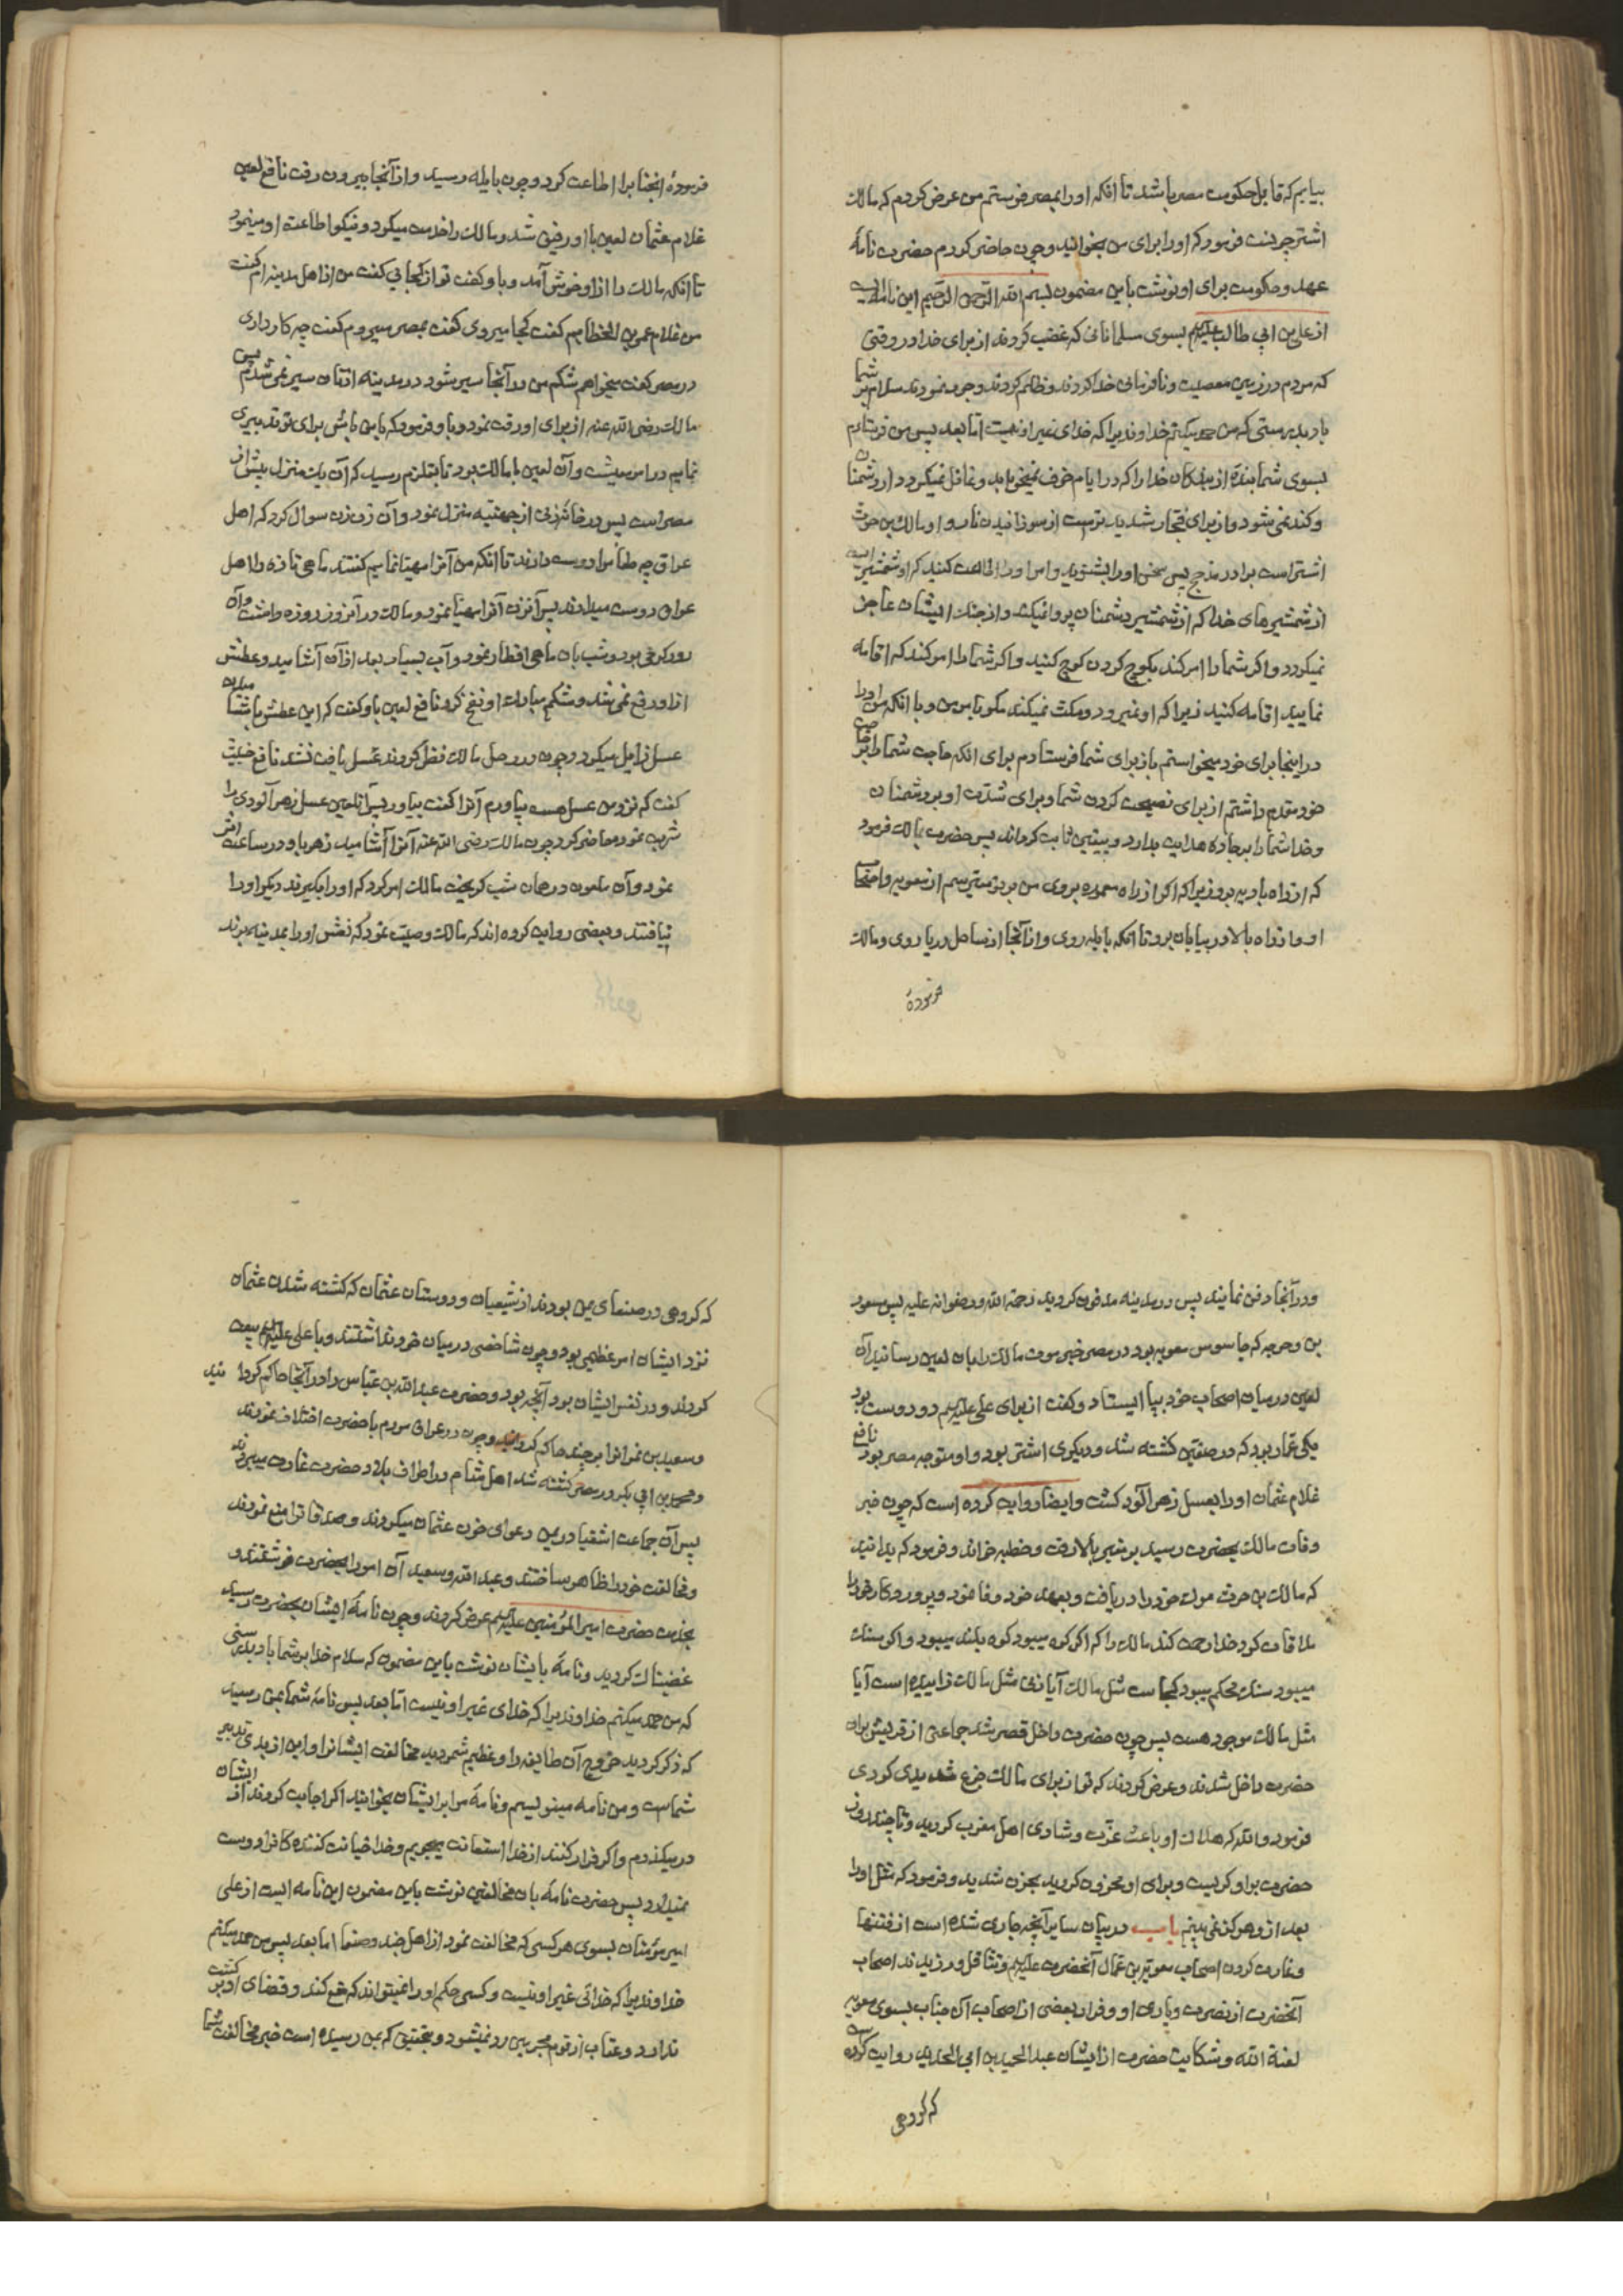 بیابم که قابل حکومت مصر باشد تا آنکه او را بمصر فرستم من عرض کردم که مالک
اشتر چونست فرمود که او را برای من بخوانید و چون حاضر کردم حضرت نامهٔ
عهد و حکومت برای او نوشت باین مضمون بسم الله الرحمن الرحیم این نامه ایست
از علی بن ابی طالب علیه السلم بسوی مسلمانانی که غضب کردند از برای خدا در وقتی
که مردم در زمین معصیت و نافرمانی خدا کردند و ظلم کردند و جور نمودند سلام بر شما
باد بدرستی که من حمد میکنم خداوندیرا که خدای غیر او نیست اما بعد پس من فرستادم
بسوی شما بندهٔ از بندکان خدا را که در ایام خوف نمیخوابد و غافل نمیکردد از دشمنان
و کند نمی شود و از برای فجار شدیدتر است از سوزانیدن نار و او مالک بن حرث
اشتر است برادر مذحج پس سخن او را بشنوید و امر او را اطاعت کنید که او شمشیریست
از شمشیرهای خدا که از شمشیر دشمنان پروا نمیکند و از جنک ایشان عاجز
نمیکردد و اکر شما را امر کند بکوچ کردن کوچ کنید و اکر شما را امر کند که اقامه
نمایید اقامه کنید زیرا که او نمیرود و مکث نمیکند مکر بامر من و با آنکه من او را
در اینجا برای خود میخواستم باز برای شما فرستادم برای آنکه حاجت شما را بر حاجت
خود مقدم داشتم از برای نصیحت کردن شما و برای شدت او بر دشمنان
و خدا شما را بر جاده هدایت بدارد و بیقین ثابت کرداند پس حضرت بمالک فرمود
که از راه بادیه برو زیرا که اکر از راه معموره بروی من بر تو میترسم از معویه و اصحاب
او و از راه بالا در بیابان برو تا آنکه بایله روی و از آنجا از ساحل دریا روی و مالک
فرمودهٔ
فرمودهٔ انجنابرا اطاعت کرد و چون بایله رسید و از آنجا بیرون رفت نافع لعین
غلام عثمان لعین با او رفیق شد و مالک را خدمت میکرد و نیکو اطاعت او مینمود
تا آنکه مالک را از او خوش آمد و باو کفت تو از کجایی کفت من از اهل مدینه ام کفت
من غلام عمر بن الخطابم کفت کجا میروی کفت بمصر میروم کفت چه کار داری
در مصر کفت میخواهم شکم من در آنجا سیر شود در مدینه از نان سیر نمی شدم پس
مالک رضی الله عنه از برای او رقت نمود و باو فرمود که با من باش برای تو تدبیری
نمایم در امر معیشت و آن لعین با مالک بود تا بقلزم رسید که آن یک منزل پیش از
مصر است پس در خانهٔ زنی از جهنیه منزل نمود و آن زن سوال کرد که اهل
عراق چه طعام را دوست دارند تا آنکه من آنرا مهیا نمایم کفتند ماهی تازه را اهل
عراق دوست میدارند پس آنزن آنرا مهیا نمود و مالک در آنروز روزه داشت و آن
روز کرمی بود و شب بان ماهی افطار نمود و آب بسیار بعد از آن آشامید و عطش
از او رفع نمی شد و شکم مبارک او نفخ کرد نافع لعین باو کفت که این عطش مبارک شما را
عسل زایل میکرد و چون در رحل مالک تفحص کردند عسل یافت نشد نافع خبیث
کفت که نزد من عسل هست بیاورم آنرا کفت بیاور پس آن لعین عسل زهر آلودی را
شربت نمود حاضر کرد چون مالک رضی الله عنه آنرا آشامید زهر باو در ساعت اثر
نمود و آن ملعون در همان شب کریخت مالک امر کرد که او را بکیرند دیکر او را
نیافتند و بعضی روایت کرده اند که مالک وصیت نمود که نعش او را بمدینه برند
و در آنجا دفن نمایند پس در مدینه مدفون کردید رحمة الله و رضوانه علیه پس مسعود
بن وحرجه که جاسوس معویه بود در مصر خبر موت مالک را بان لعین رسانید آن
لعین در میان اصحاب خود بپا ایستاد و کفت از برای علی علیه السلم دو دوست بود
یکی عمار بود که در صفین کشته شد و دیکری اشتر بود و او متوجه مصر بود نافع
غلام عثمان او را بعسل زهر آلود کشت و ایضا روایت کرده است که چون خبر
وفات مالک بحضرت رسید بر منبر بالا رفت و خطبه خواند و فرمود که بدانید
که مالک بن حرث موت خود را دریافت و بعهد خود وفا نمود و پروردکار خود را
ملاقات کرد خدا رحمت کند مالک را که اکر کوه میبود کوه بلند میبود و اکر سنک
میبود سنک محکم میبود کجاست مثل مالک آیا زنی مثل مالک زاییده است آیا
مثل مالک موجود هست پس چون حضرت داخل قصر شد جماعتی از قریش بران
حضرت داخل شدند و عرض کردند که تو از برای مالک جزع شدیدی کردی
فرمود والله که هلاک او باعث عزت و شادی اهل مغرب کردید و تا چند روز
حضرت براو کریست و برای او محزون کردید بحزن شدید و فرمود که مثل او را
بعد از او هرکز نمی بینم باب در بیان سایر آنچه جاری شده است از فتنها
و غارت کردن اصحاب معویه بر عمال آنحضرت علیه السلم و تثاقل ورزیدند اصحاب
آنحضرت از نصرت و یاری او و فرار بعضی از اصحاب آن جناب بسوی معویه
لعنة الله و شکایت حضرت از ایشان عبد الحمید بن ابی الحدید روایت کرده است
که کروهی
که کروهی در صنعای یمن بودند از شیعیان و دوستان عثمان که کشته شدن عثمان
نزد ایشان امر عظیمی بود و چون شاخصی در میان خود نداشتند و با علی علیه السلم بیعت
کردند و در نفس ایشان بود آنچه بود و حضرت عبد الله بن عباس را در آنجا حاکم کردانید
و سعید بن نمران را بر جند حاکم کردانید و چون در عراق مردم با حضرت اختلاف نمودند
و محمد بن ابی بکر در مصر کشته شد اهل شام در اطراف بلاد حضرت غارت میبردند
پس آن جماعت اشقیا در یمن دعوای خون عثمان میکردند و صدقات را منع نمودند
و مخالفت خود را ظاهر ساختند و عبد الله و سعید آن امور را بحضرت نوشتند و
بخدمت حضرت امیر المؤمنین علیه السلم عرض کردند و چون نامهٔ ایشان بحضرت رسید
غضبناک کردید و نامهٔ بایشان نوشت باین مضمون که سلام خدا بر شما باد بدرستی
که من حمد میکنم خداوندیرا که خدای غیر او نیست اما بعد پس نامهٔ شما بمن رسید
که ذکر کردید خروج آن طایفه را و عظیم شمردید مخالفت ایشانرا و این از بدی تدبیر
شماست و من نامه مینویسم و نامهٔ مرا بر ایشان بخوانید اکر اجابت کردند از ایشان
در میکذرم و اکر فرار کنند از خدا استعانت میجویم و خدا خیانت کننده کافر را دوست
نمیدارد پس حضرت نامهٔ بان مخالفین نوشت باین مضمون این نامه ایست از علی
امیر مؤمنان بسوی هر کسی که مخالفت نمود از اهل جند و صنعا اما بعد پس من حمد میکنم
خداوندیرا که خدائی غیر او نیست و کسی حکم او را نمیتواند که منع کند و قضای او بر کشت
ندارد و عتاب از قوم مجرمین رد نمیشود و بتحقیق که بمن رسیده است خبر مخالفت شما